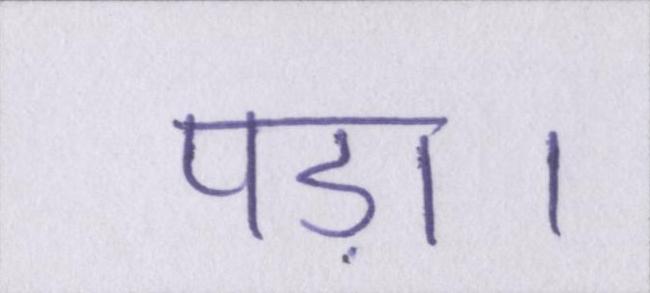 पड़ा।